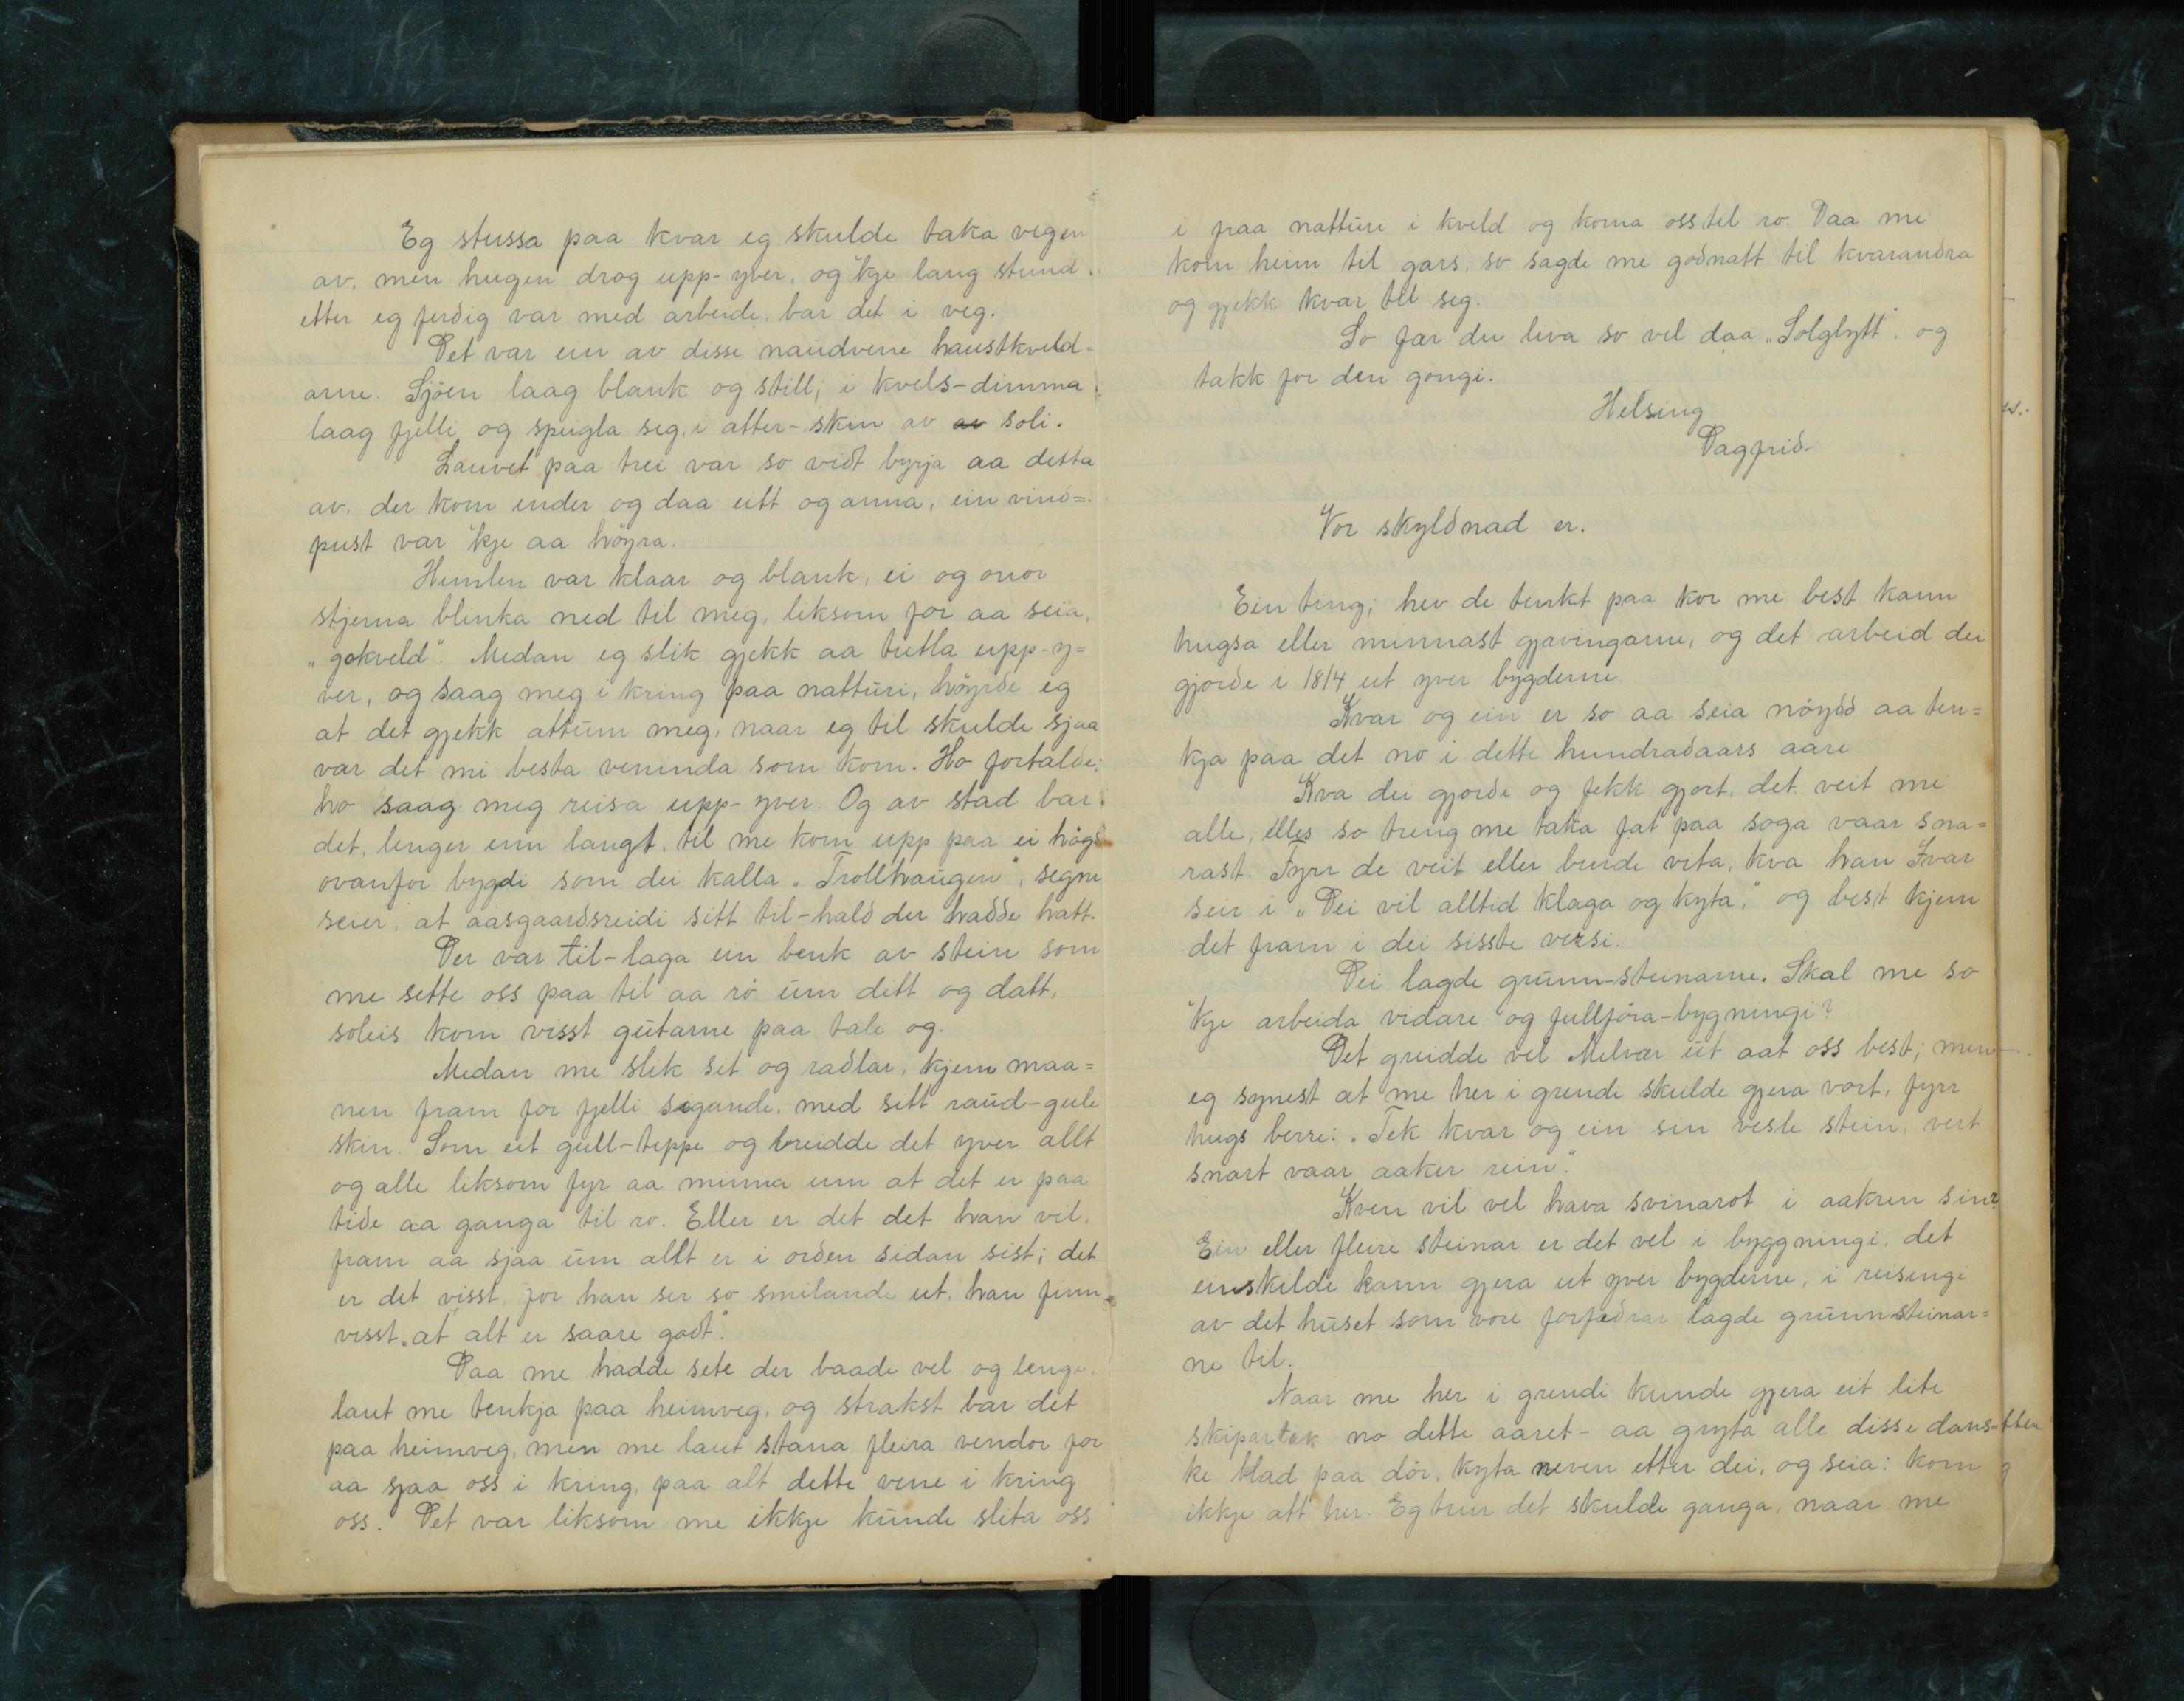 Eg stussa paa kvar eg skulde taka vegen
av, men hugen drog upp-yver, og 'kje lang stund
etter eg ferdig var med arbeide, bar det i veg.
Det var ein av disse naudvene haustkveld-
arne. Sjöen laag blank og still, i kvels-dimma
laag fjelli og spegla seg, i atter-skin av av soli.
Lauvet paa trei var so vidt byrja aa detta
av, der kom ender og daa eitt og anna, ein vind=
pust var 'kje aa höyra.
Himlen var klaar og blank, ei og onor
stjerna blinka ned til meg, liksom for aa seia,
„gokveld". Medan eg slik gjekk aa tutla upp-y=
ver, og saag meg i kring paa natturi, höyrde eg
at det gjekk attum meg, naar eg til skulde sjaa
var det mi besta veninda som kom. Ho fortalde;
ho saag meg reisa upp-yver. Og av stad bar
det, lenger enn langt, til me kom upp paa ei högd
ovanfor bygdi som dei kalla „Trollhaugen", segne
seier, at aasgaardsreidi sitt til-hald der hadde hatt.
Der var til-laga ein benk av stein som
me sette oss paa til aa rö um dett og datt,
soleis kom visst gutarne paa tale og.
Medan me slik sit og radlar, kjem maa=
nen fram for fjelli sigande, med sitt raud-gule
skin. Som eit gull-teppe og breidde det yver allt
og alle liksom fyr aa minna um at det er paa
tide aa ganga til ro. Eller er det det han vil,
fram aa sjaa um allt er i orden sidan sist; det
er det visst, for han ser so smilande ut, han finn
visst „at alt er saare godt".
Daa me hadde sete der baade vel og lenge,
laut me tenkja paa heimveg, og strakst bar det
paa heimveg, men me laut stana fleira vendor for
aa sjaa oss i kring, paa alt dette vene i kring
oss. Det var liksom me ikkje kunde slita oss
i fraa natturi i kveld og koma oss til ro. Daa me
kom heim til gars, so sagde me godnatt til kvarandra
og gjekk kvar til seg.
So fær du leva so vel daa „Solglytt". og
takk for den gongi.
Helsing
Dagfrid
Vor skyldnad er.
Ein ting; hev de tenkt paa kor me best kann
hugsa eller minnast gjævingarne, og det arbeid dei
gjorde i 1814 ut yver bygderne.
Kvar og ein er so aa seia nöydd aa ten=
kja paa det no i dette hundradaars aare
Kva dei gjorde og fekk gjort, det veit me
alle, elles so treng me taka fat paa soga vaar sna=
rast. Fyrr de veit eller burde vita, kva han Ivar
seier i „Dei vil alltid klaga og kyta," og best kjem
det fram i dei sisste versi.
Dei lagde grunn-steinarne. Skal me so
'kje arbeida vidare og fullföra-bygningi?
Det greidde vel Melvær ut aat oss best; men
eg synest at me her i grendi skulde gjera vort, fyrr
hugs berre: „Tek kvar og ein sin vesle stein, vert
snart vaar aaker rein".
Kven vil vel hava svinarot i aakren sin?
Ein eller fleire steinar er det vel i byggningi, det
einskilde kann gjera ut yver bygderne, i reisingi
av det huset som vore forfedrar lagde grunn-steinar=
ne til.
Naar me her i grendi kunde gjera eit lite
skipartak no dette aaret - aa gryta alle disse dans-
ke blad paa dör, kyta neven etter dei, og seia: kom
ikkje att her. Eg trur det skulde ganga, naar me